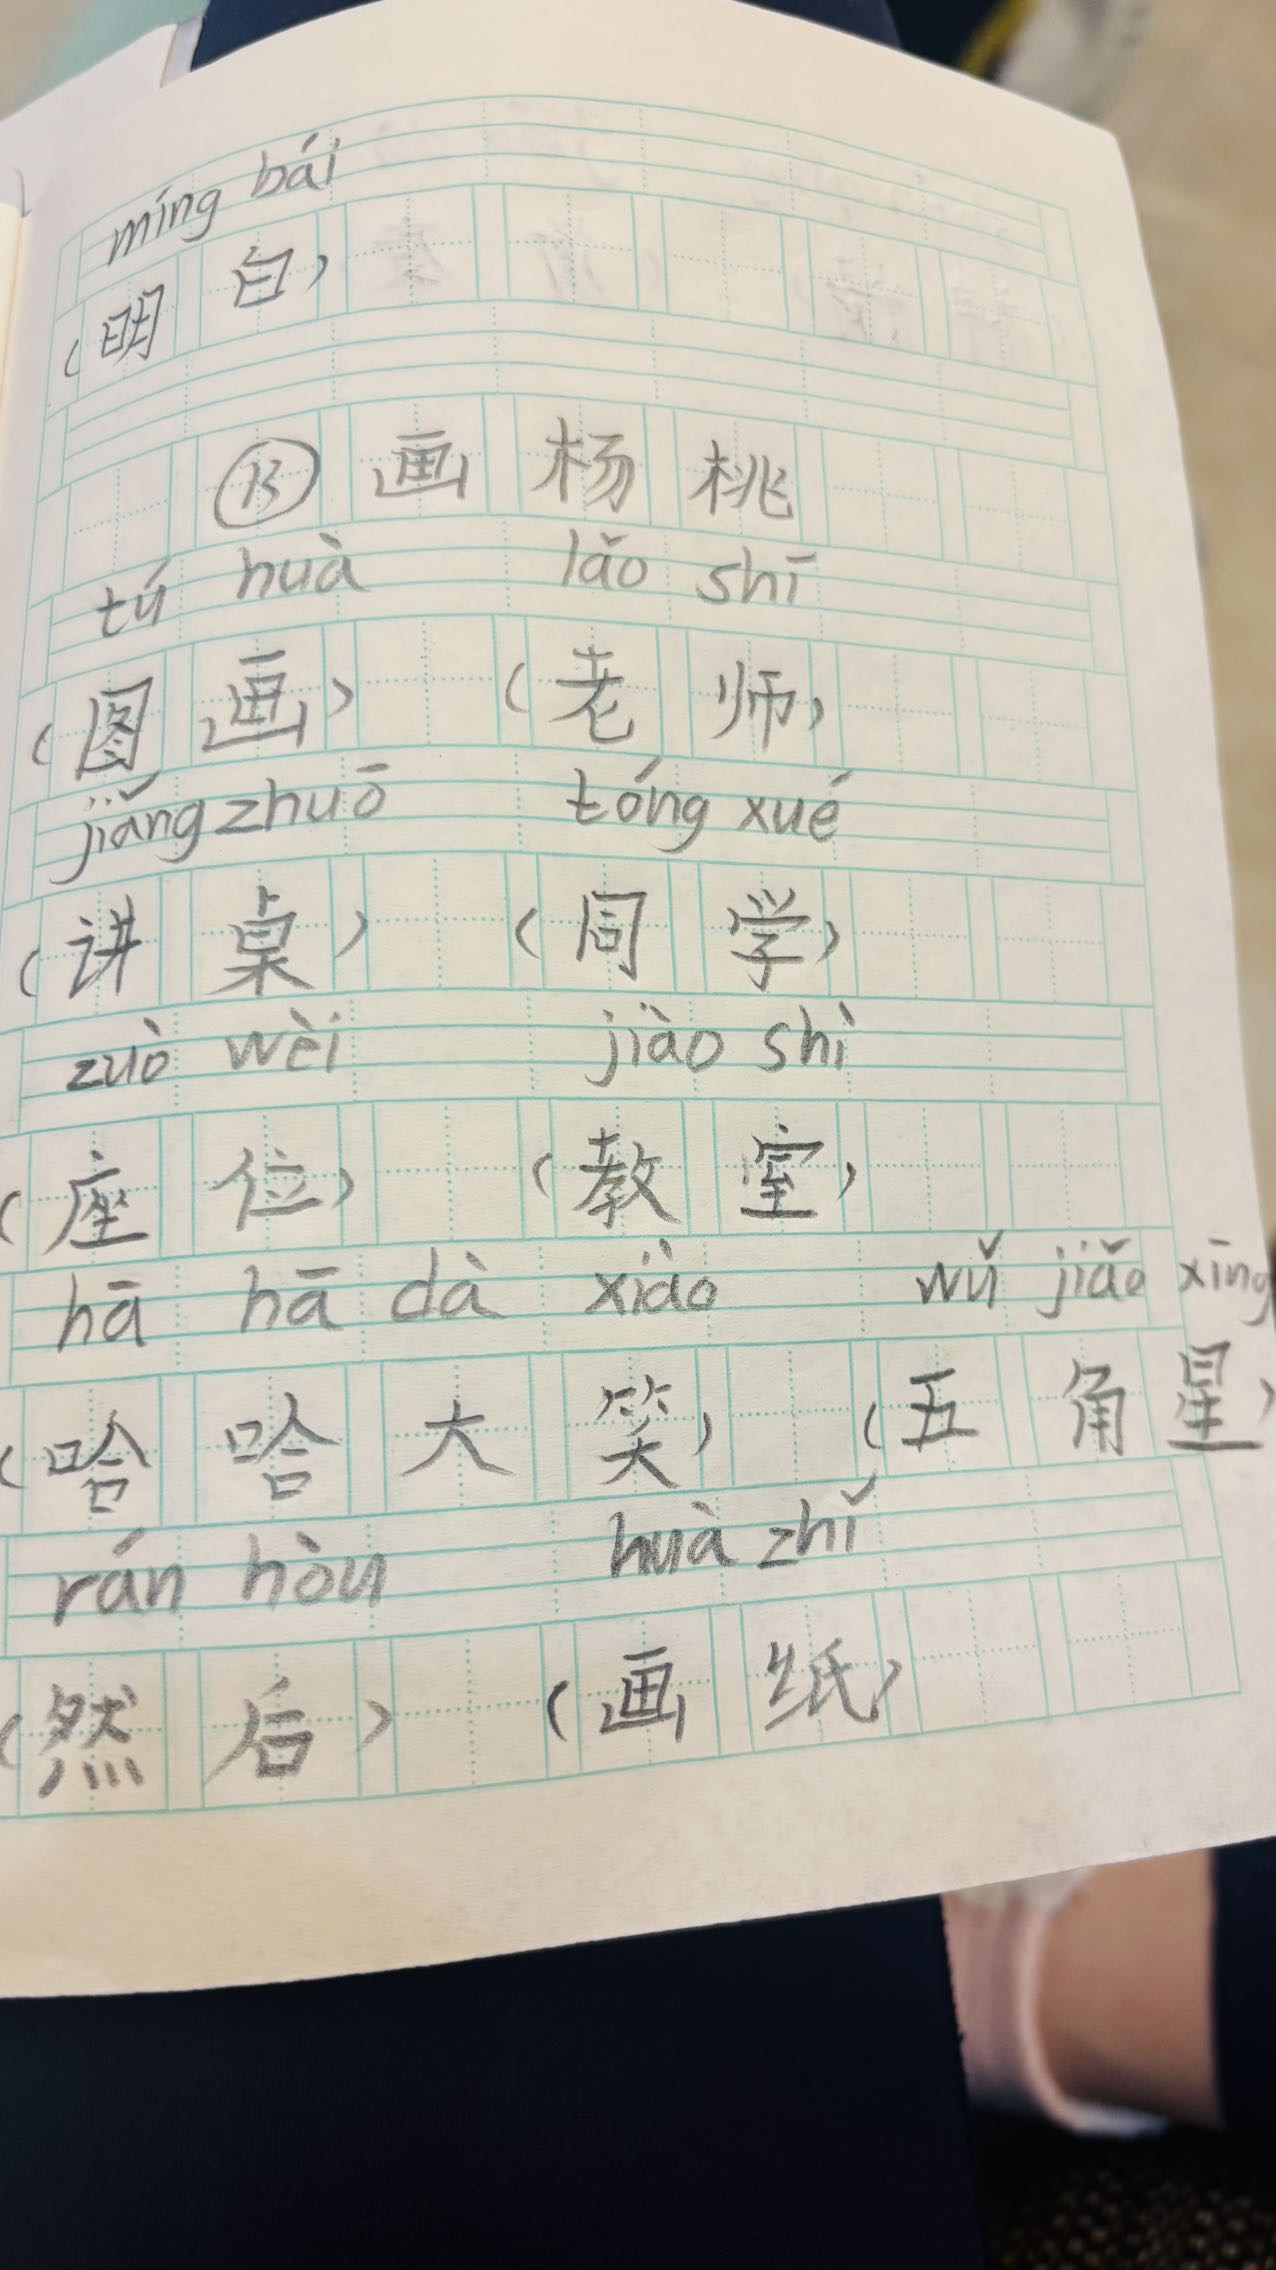 míng bái
（明白）
⑬画杨桃
tú huà lǎo shī
（图画）（老师）
jiǎng zhuō tóng xué
（讲桌）（同学）
zuò wèi jiào shì
（座位）（教室）
hā hā dà xiào wǔ jiǎo xīng
（哈哈大笑）（五角星）
rán hòu huà zhǐ
（然后）（画纸）